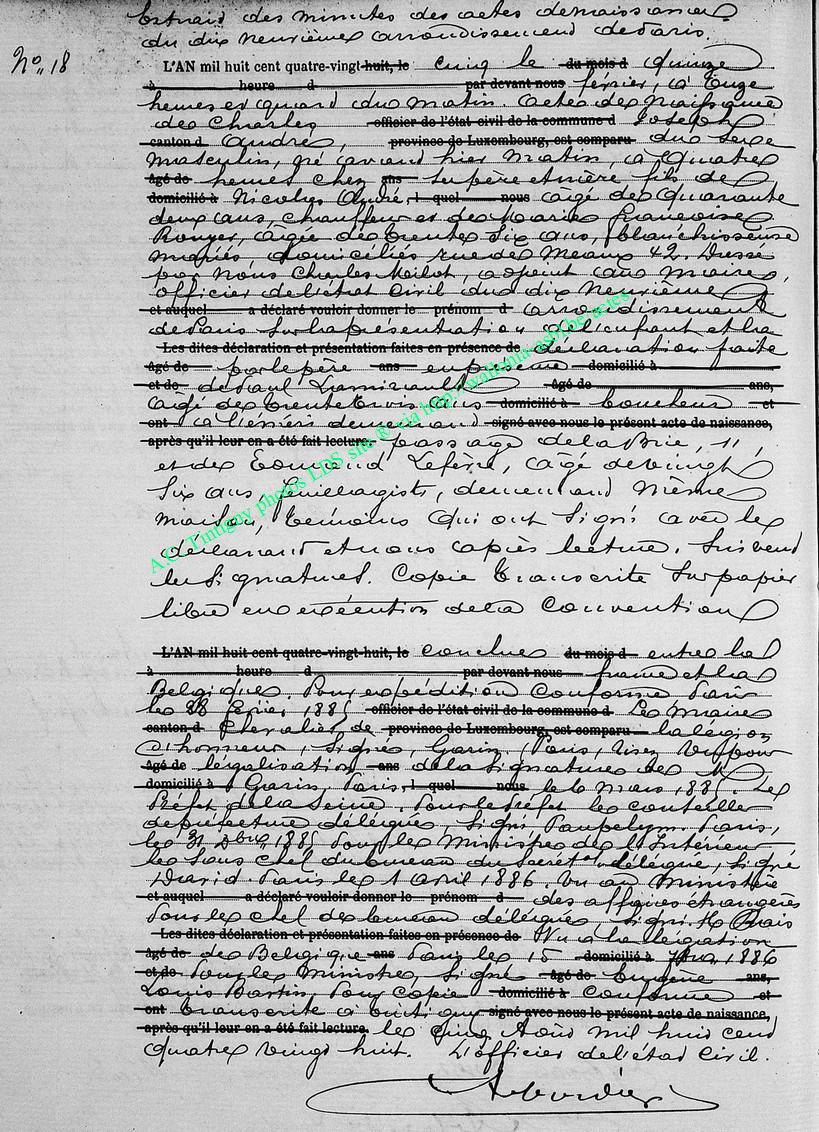 Extrait des minutes des actes de naissances
du dix neuvième arrondissement de Paris.
No 18
L'AN mil huit cent quatre-vingt-huit, le cinq le du mois d quinze
à heure d par devant nous février, à onze
heures et quart du matin. Acte de Naissance
de Charles officier de l'état civil de la commune d Joseph
canton d André, province de Luxembourg, est comparu du sexe
masculin, né avant hier Matin, à Quatre
âgé de heures chez ans ses père et mère fils de
domicilié à Nicolas André, l quel nous âgé de quarante
deux ans, chauffeur et de Marie Françoise
Rouyer, âgée de trente six ans, blanchisseuse
mariés, domiciliés rue de Meaux 42. Dressé
par Nous Charles Mailot, adjoint au Maire,
officier de l'état civil du dix Neuvième
et auquel a déclaré vouloir donner le prénom d arrondissement
de Paris sur la présentation de l'enfant et la
Les dites déclaration et présentation faites en présence de déclaration faite
âgé de par le père ans en présence domicilié à
et de de Paul âgé de ans,
âgé de trente trois ans domicilié à boucher et
ont demeurant signé avec nous le présent acte de naissance,
après qu'il leur en a été fait lecture, passage de la Brie, 11,
et de Edmond Lefèvre, âgé de vingt
six ans, demeurant même
maison, témoins qui ont signé avec le
déclarant et nous après lecture. Suivent
les signatures. Copie transcrite sur papier
libre en exécution de la convention
L'AN mil huit cent quatre-vingt-huit, le conclue du mois d entre la
à heure d par devant nous france et la
Belgique. Pour expédition conforme Paris
le 28 1885 officier de l'état civil de la commune d Le Maire
canton d Chevalier de province de Luxembourg, est comparu la légion
d'honneur, Signé, Garin. Paris, Vu pour
âgé de légalisation ans de la Signature de M
domicilié à Garin. Paris, l quel nous le 6 Mars 1885. Le
Préfet de la Seine. Pour le Préfet le conseiller
de préfecture délégué, Signé Paris,
le 31 Xbre 1885 Pour le Ministre de l'Intérieur
Le Sous Chef du bureau du Secrét délégué, Signé
David. Paris le 1 avril 1886. Vu au Ministère
et auquel a déclaré vouloir donner le prénom d des affaires étrangères
Pour le chef de bureau délégué Signé H
Les dites déclaration et présentation faites en présence de Vu à la légation
âgé de de Belgique ans Paris le 15 domicilié à 1886
et de Pour le Ministre, Signé âgé de Eugène ans,
Louis Bastin, Pour copie domicilié à conforme et
ont transcrite à Tintigny signé avec nous le présent acte de naissance,
après qu'il leur en a été fait lecture. le cinq Août mil huit cent
quatre vingt huit. L'officier de l'état civil.
A.G. Tintigny photos LDS site ® via http://wallonia-asbl.be/actes